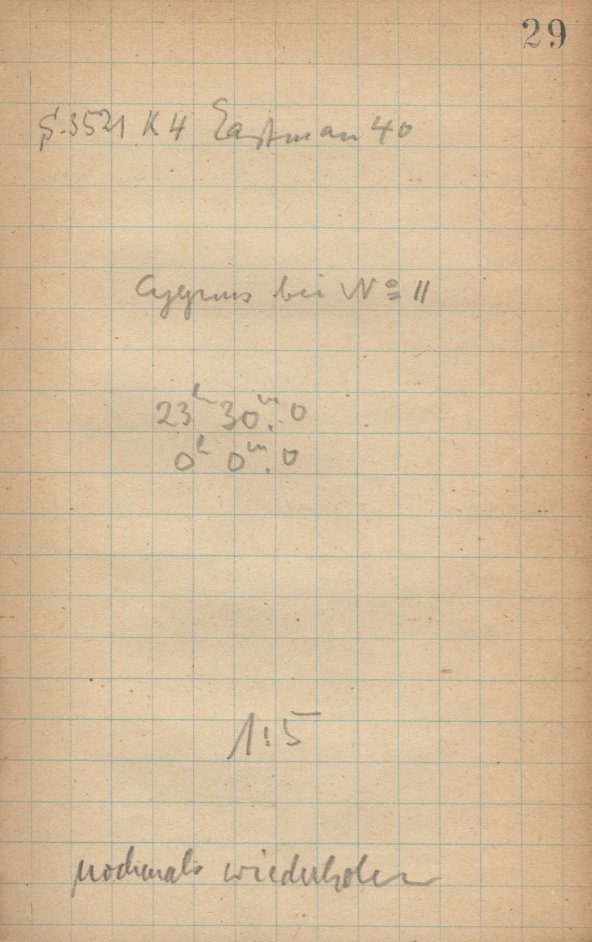 29
S.3521 K4 Eastman 40
Cygnus bei Nº 11
23ʰ 30ᵐ.0
0ʰ 0ᵐ.0
1:5
nochmals wiederholen